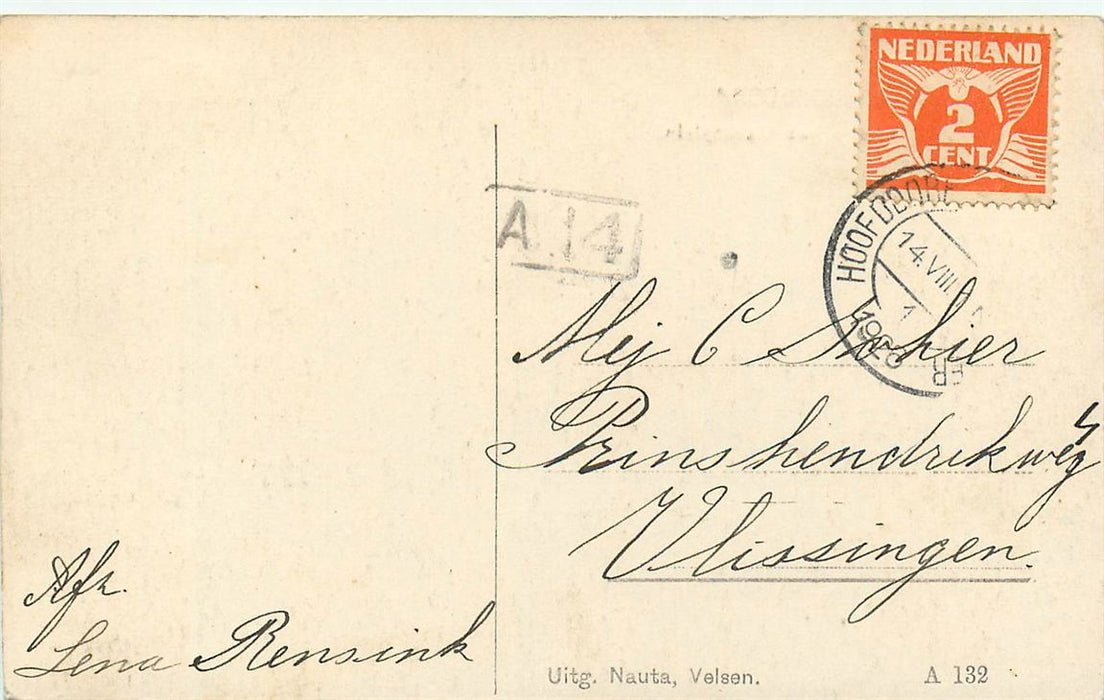 NEDERLAND
2
CENT
HOOFDDORP
14.VIII
1
A.14
Mej C
Prinshendrikweg 4
Vlissingen.
Afz.
Lena Rensink
Uitg. Nauta, Velsen.
A 132